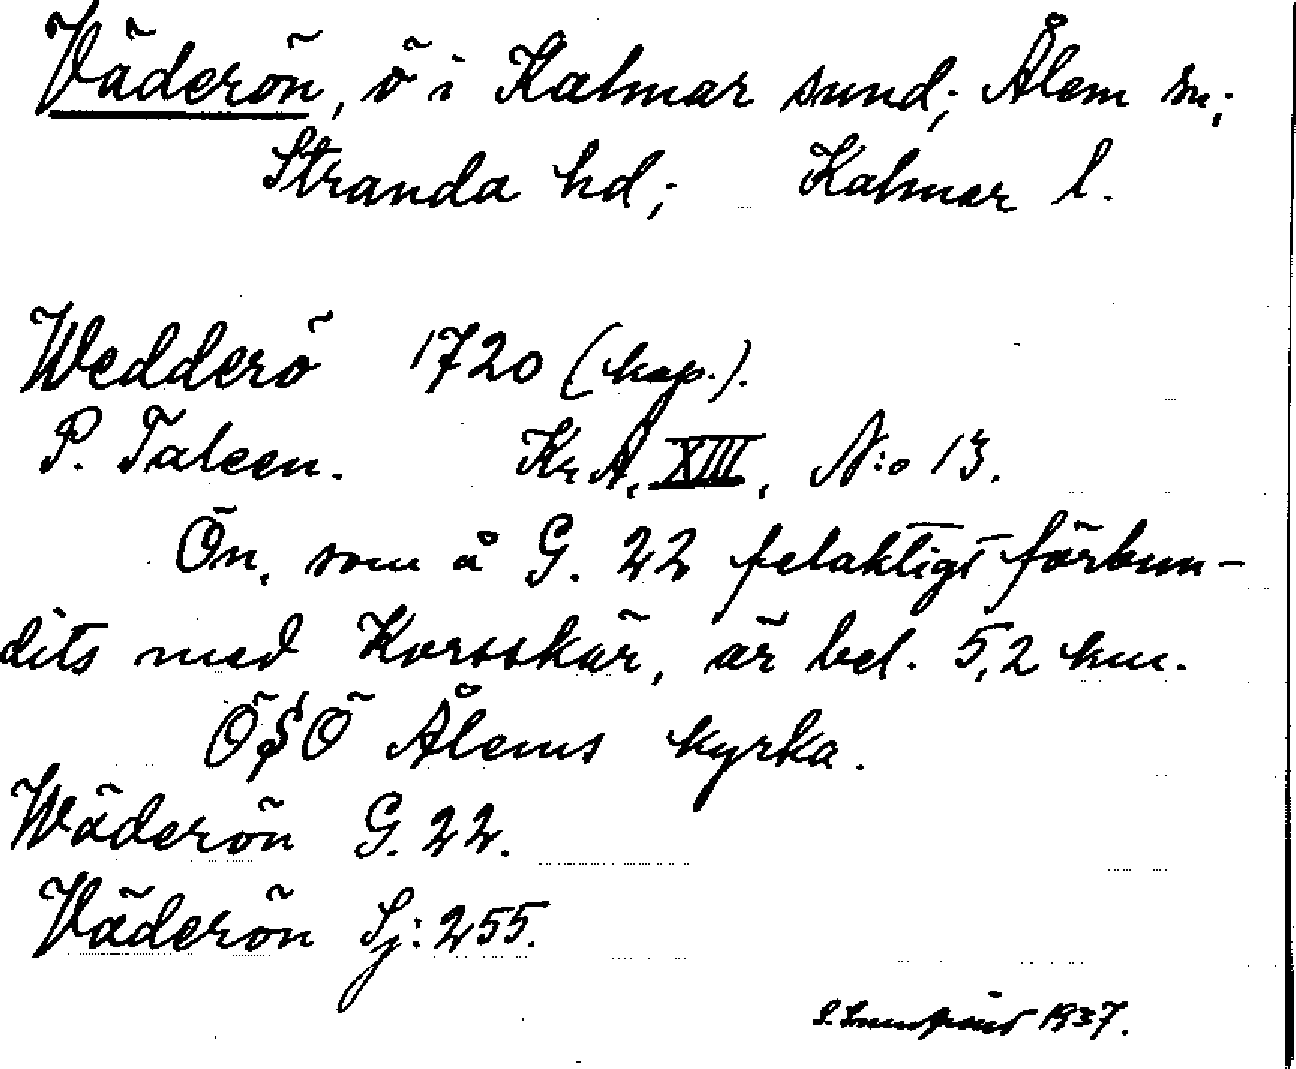 Väderön, ö i Kalmar sund; Ålem sn;
Stranda hd; Kalmar l.
Wedderö 1720 (kop.).
P. Taleen. Kr.A, XIII, N:o 13.
Ön, som å G. 22 felaktigt förbun-
dits med Korsskär, är bel. 5,2 km.
ÖSÖ Ålems kyrka.
Wäderön G. 22.
Väderön Sj: 255.
1937.